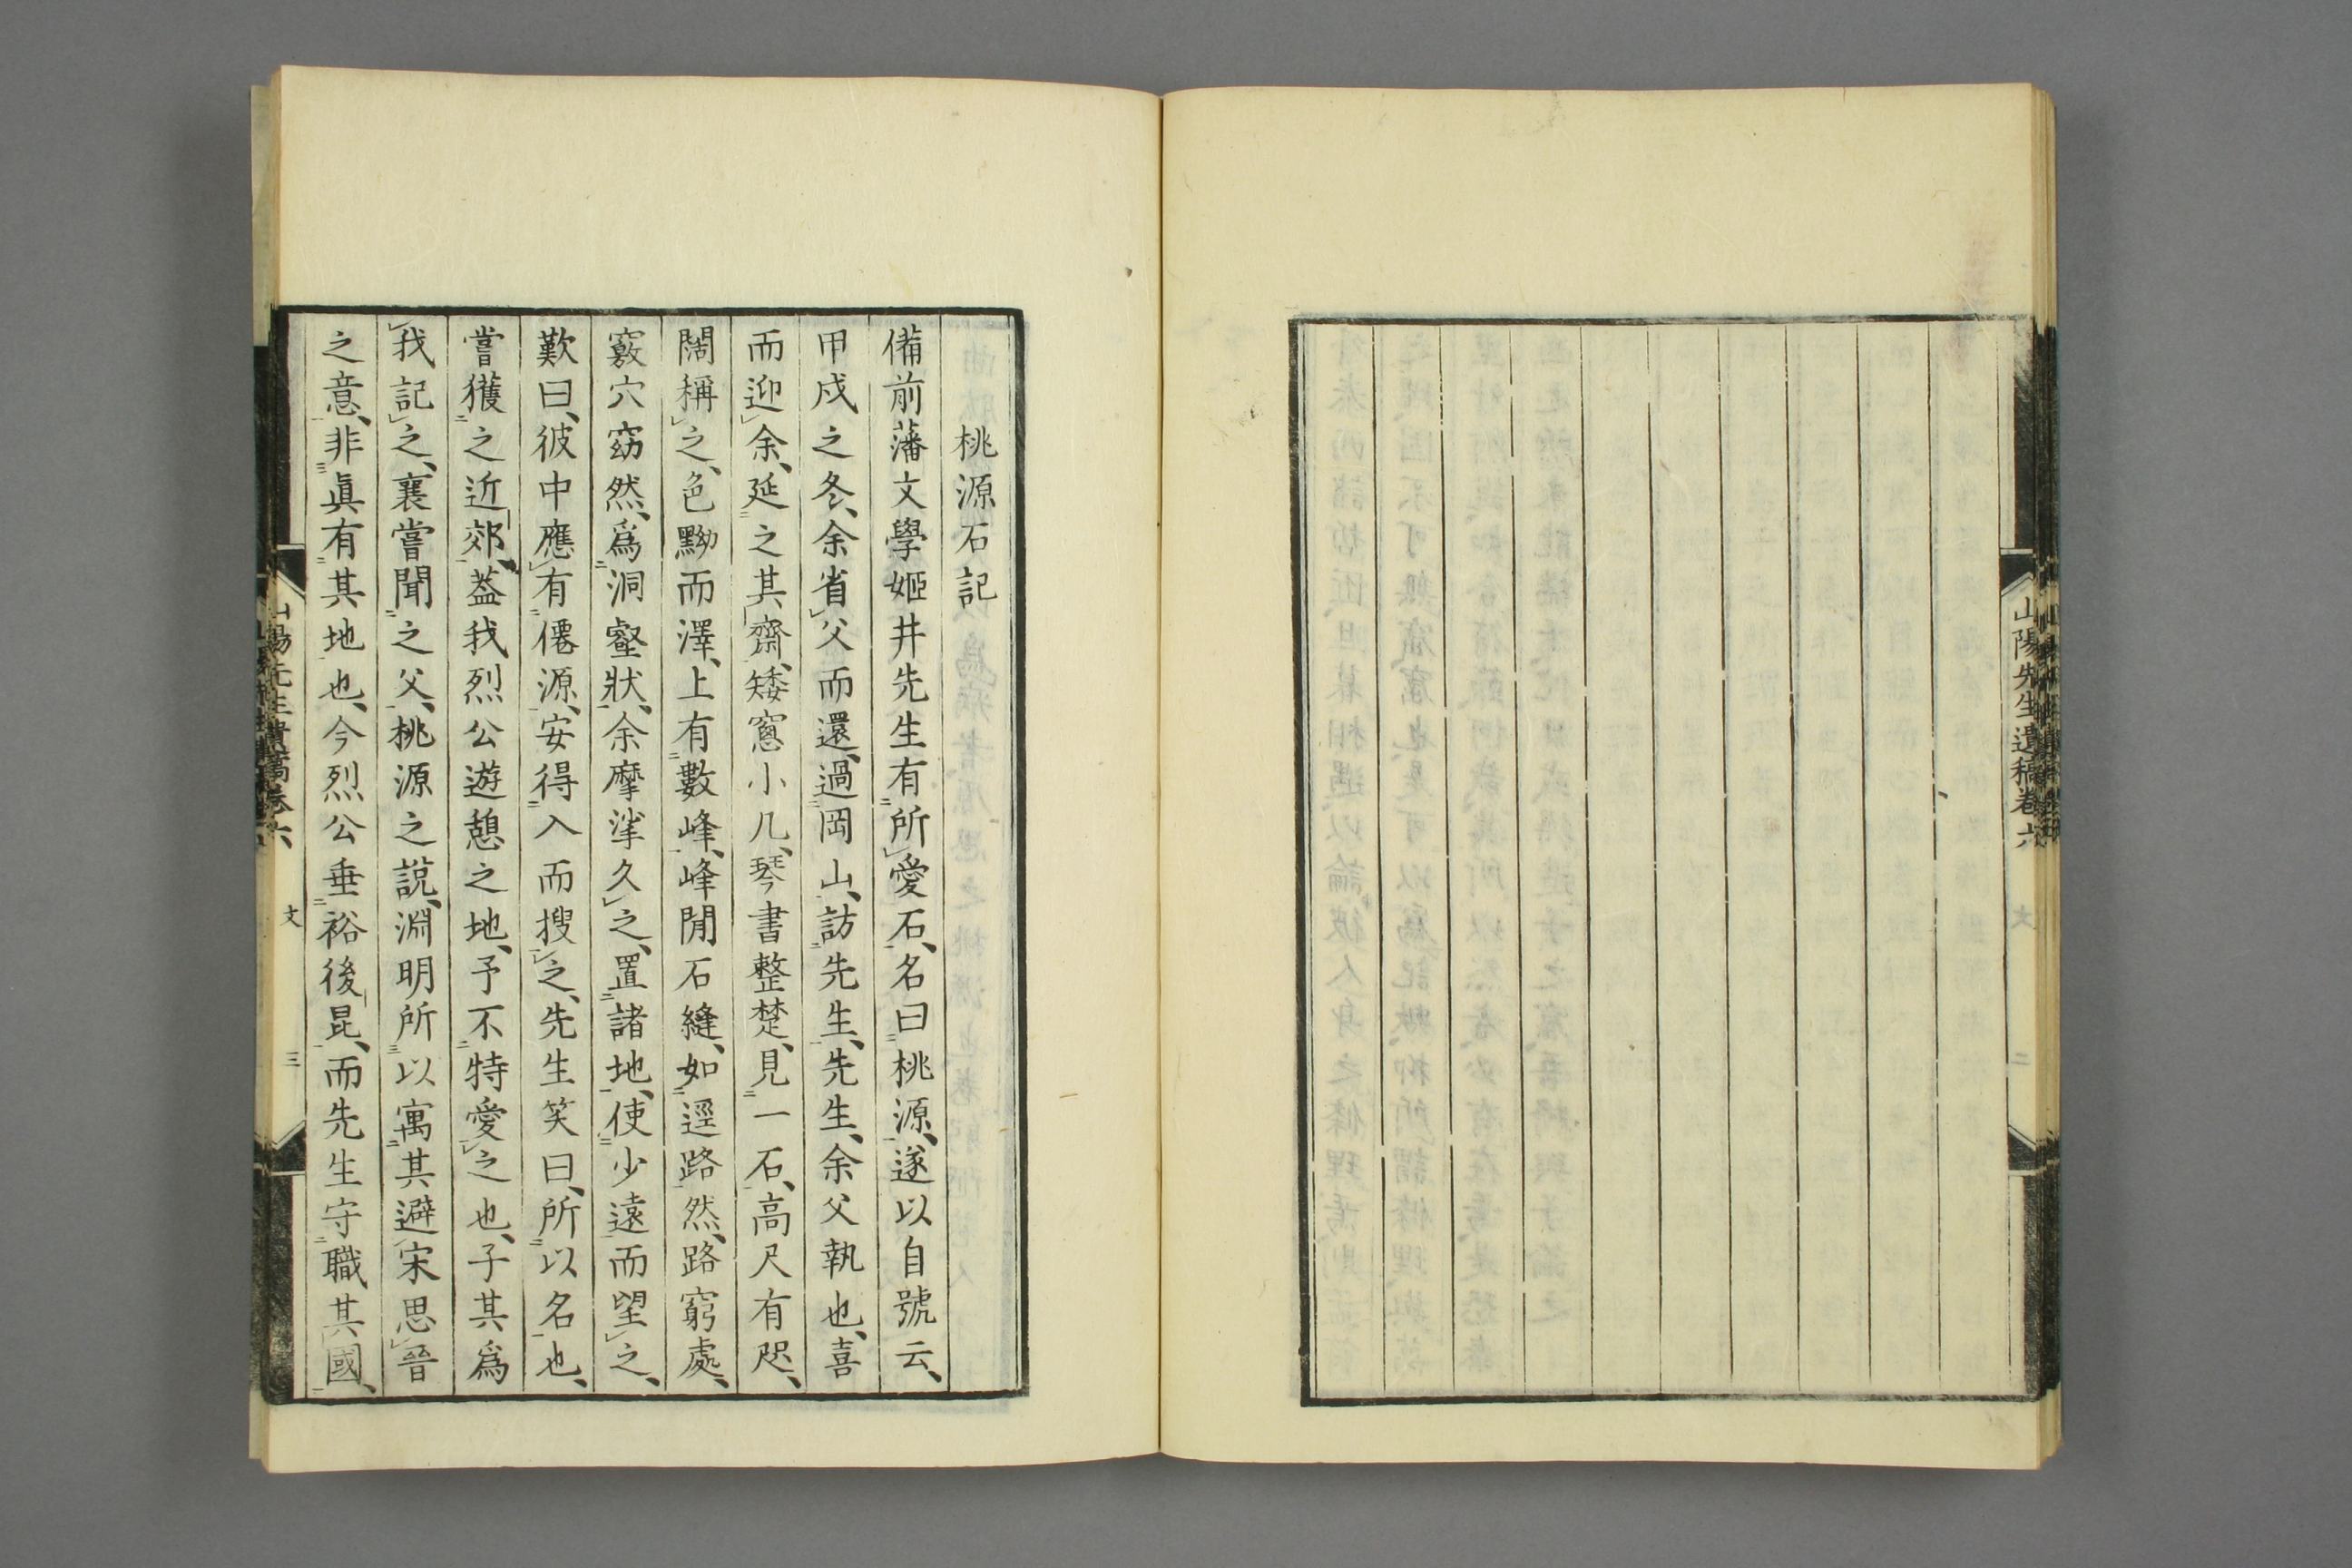 山陽先生遺稿卷六
桃源石記
備前藩文學姬井先生有所愛石、名曰桃源、遂以自號云、
甲戌之冬、余省父而還、過岡山、訪先生、先生、余父執也、喜
而迎余、延之其齋、矮窻小几、琴書整楚、見一石、高尺有咫、
闊稱之、色黝而澤、上有數峰、峰閒石縫、如逕路然、路窮處、
竅穴窈然、爲洞壑狀、余摩挲久之、置諸地、使少遠而望之、
歎曰、彼中應有僊源、安得入而搜之、先生笑曰、所以名也、
嘗獲之近郊、葢我烈公遊憩之地、予不特愛之也、子其爲
我記之、襄嘗聞之父、桃源之說、淵明所以寓其避宋思晉
之意、非眞有其地也、今烈公垂裕後昆、而先生守職其國、
文
三